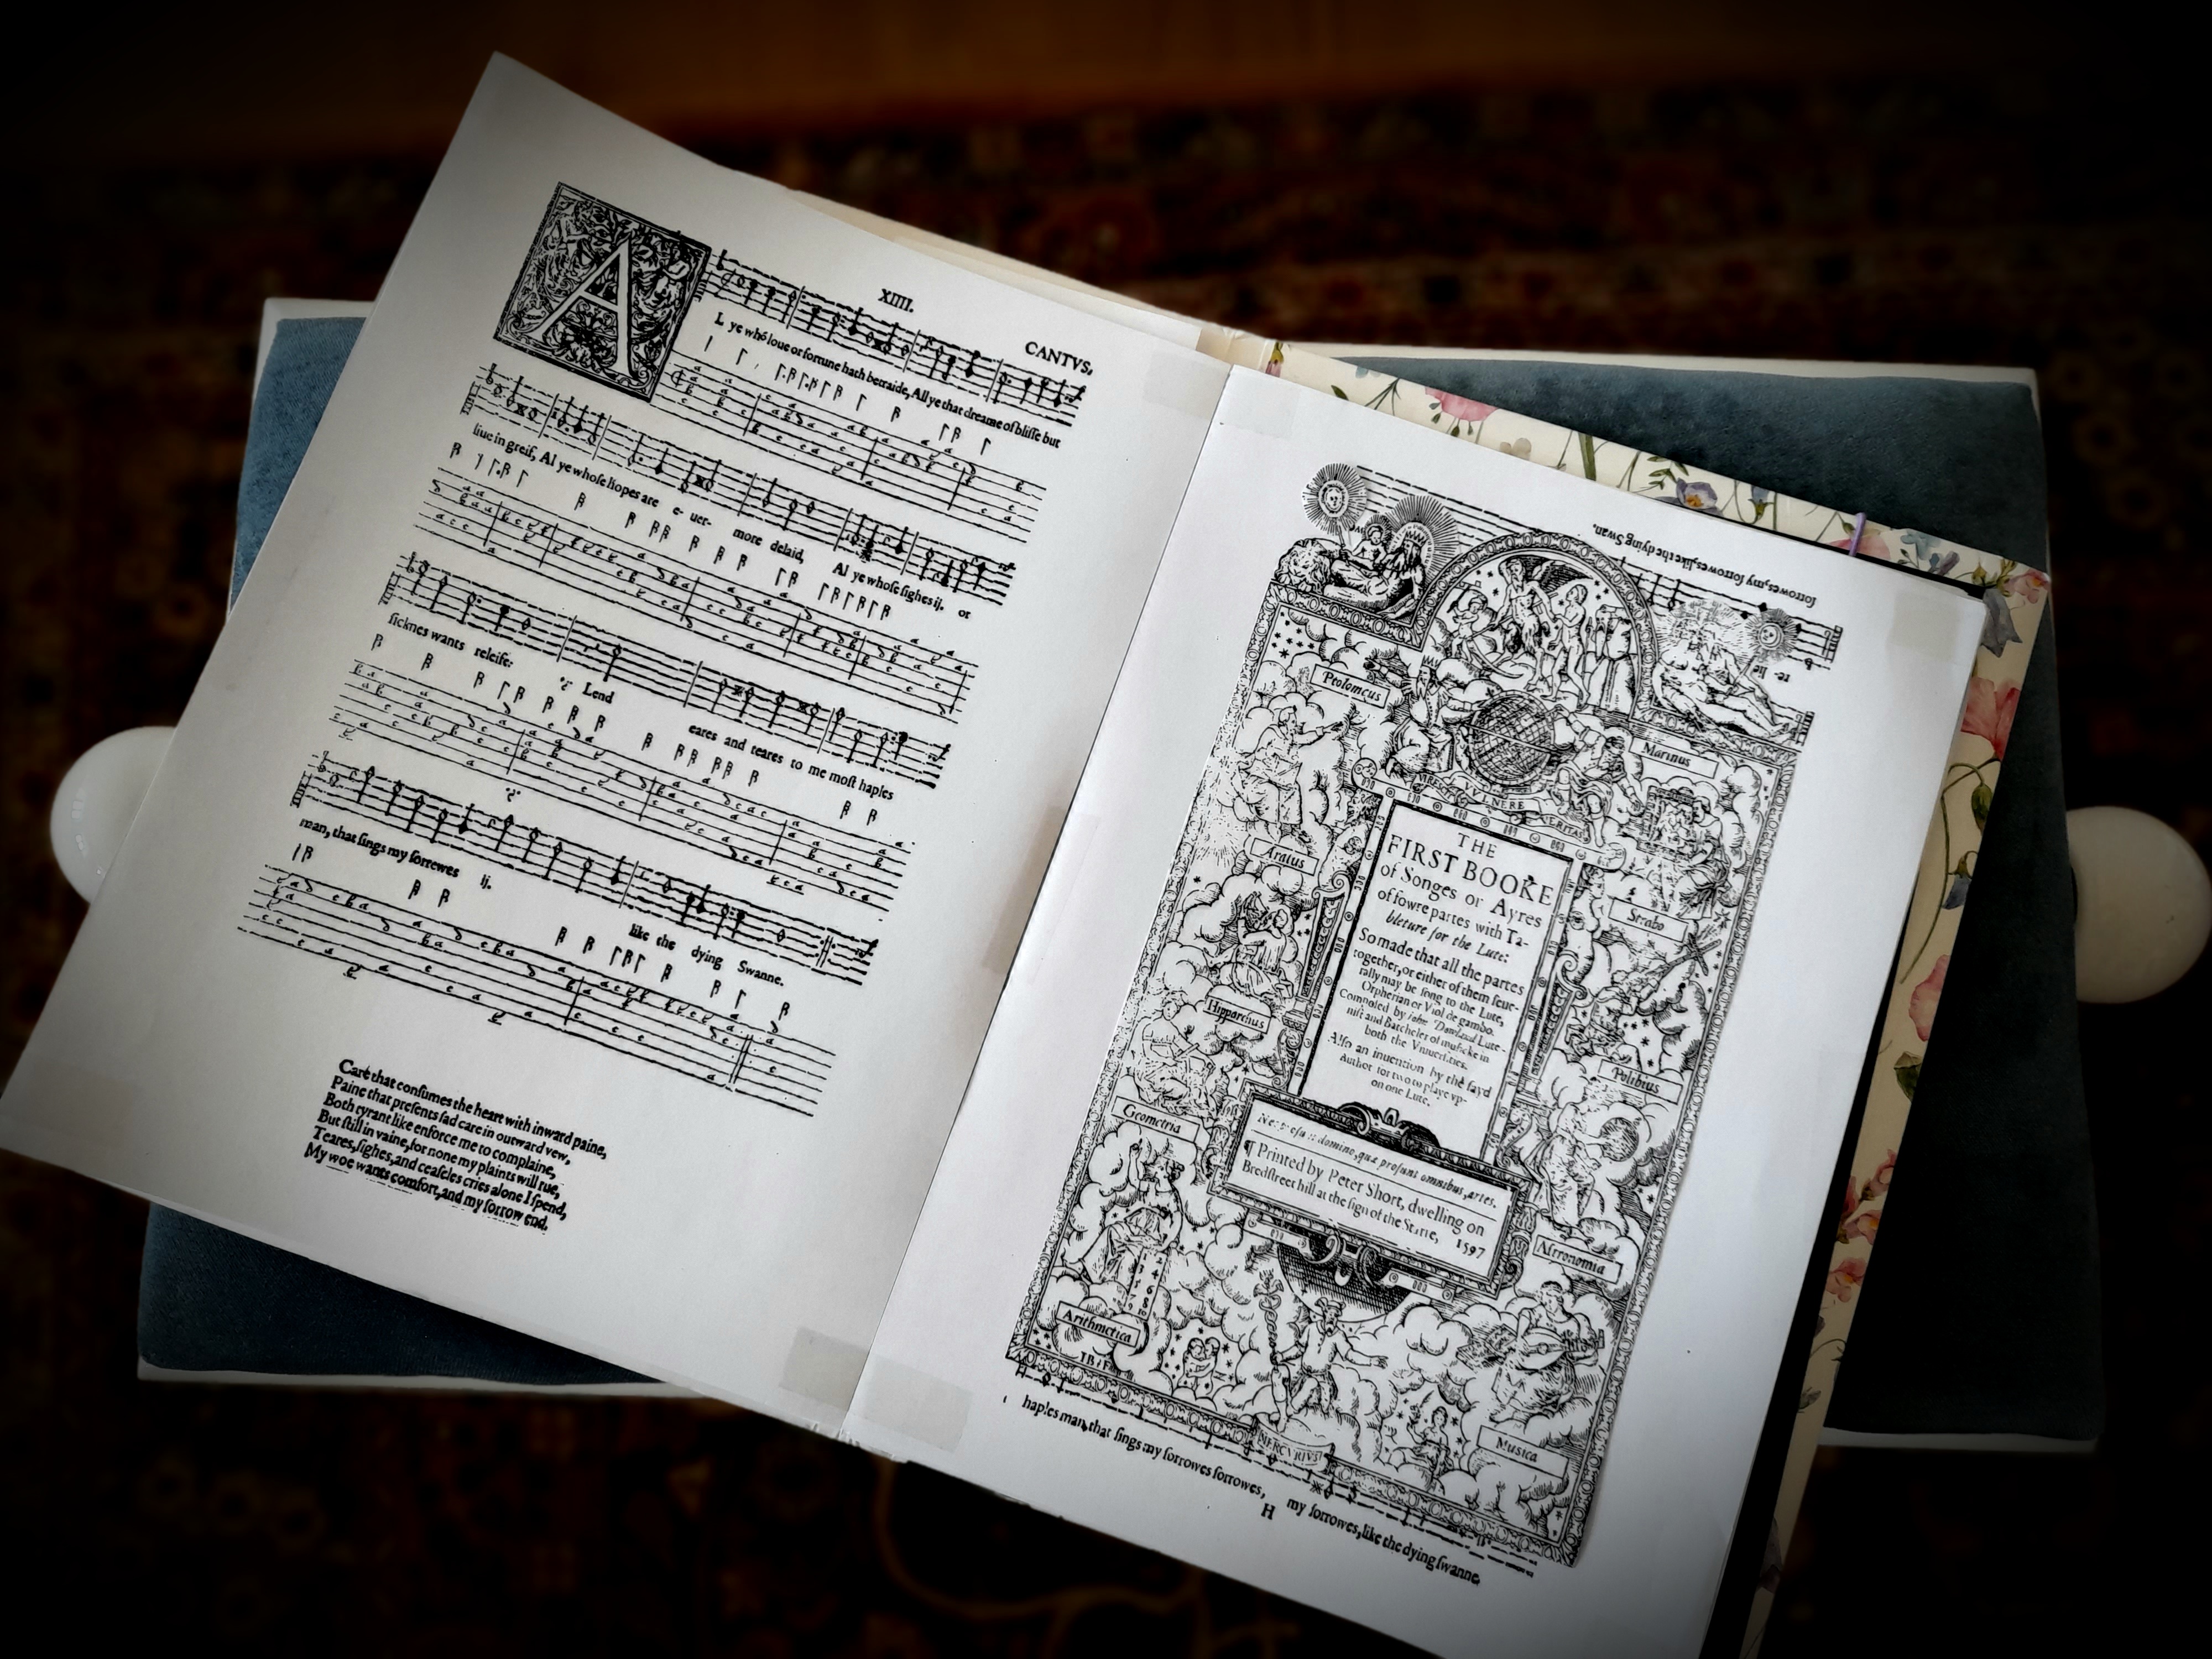 XIIII.
CANTVS,
A
L ye who loue or fortune hath betraide, All ye that dreame of blisse but
liue in greif, Al ye whose hopes are e- uer- more delaid, Al ye whose sighes ij. or
sicknes wants releife. Lend eares and teares to me most haples
man, that sings my sorrewes ij. like the dying Swanne.
Care that consumes the heart with inward paine,
Paine that presents sad care in outward vew,
Both tyrant like enforce me to complaine,
But still in vaine, for none my plaints will rue,
Teares, sighes, and ceaseles cries alone I spend,
My woe wants comfort, and my sorrow end.
sorrowes, my sorrowes, like the dying Swan.
re- lie
Ptolomeus
Marinus
VIVNERE VERITAS
Aratus
Strabo
Hipparchus
Polibius
THE
FIRST BOOKE
of Songes or Ayres
of fowre partes with Ta-
bleture for the Lute:
So made that all the partes
together, or either of them seue-
rally may be song to the Lute,
Orpherian or Viol de gambo.
Composed by Iohn Dowland Lute-
nist and Batcheler of musicke in
both the Vniuersities.
Also an inuention by the sayd
Author for two to playe vp-
on one Lute.
domino, quæ prosunt omnibus, artes.
¶ Printed by Peter Short, dwelling on
Bredstreet hill at the sign of the Starre, 1597
Geometria
Astronomia
Arithmetica
Musica
MERCVRIVS
haples man, that sings my sorrowes sorrowes, my sorrowes, like the dying swanne.
H